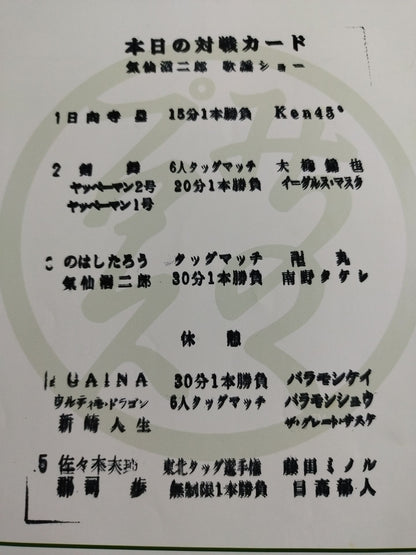 本日の対戦カード
気仙沼二郎 歌謡ショー
1 日向寺塁 15分1本勝負 Ken45°
2 剣舞 6人タッグマッチ 大柳錦也
ヤッペーマン2号 20分1本勝負 イーグルス・マスク
ヤッペーマン1号
のはしたろう タッグマッチ
気仙沼二郎 30分1本勝負 南野タケシ
休憩
GAINA 30分1本勝負 バラモンケイ
ウルティモ・ドラゴン 6人タッグマッチ バラモンシュウ
新崎人生 ザ・グレート・サスケ
5 佐々木大地 東北タッグ選手権 藤田ミノル
郡司歩 無制限1本勝負 日高郁人